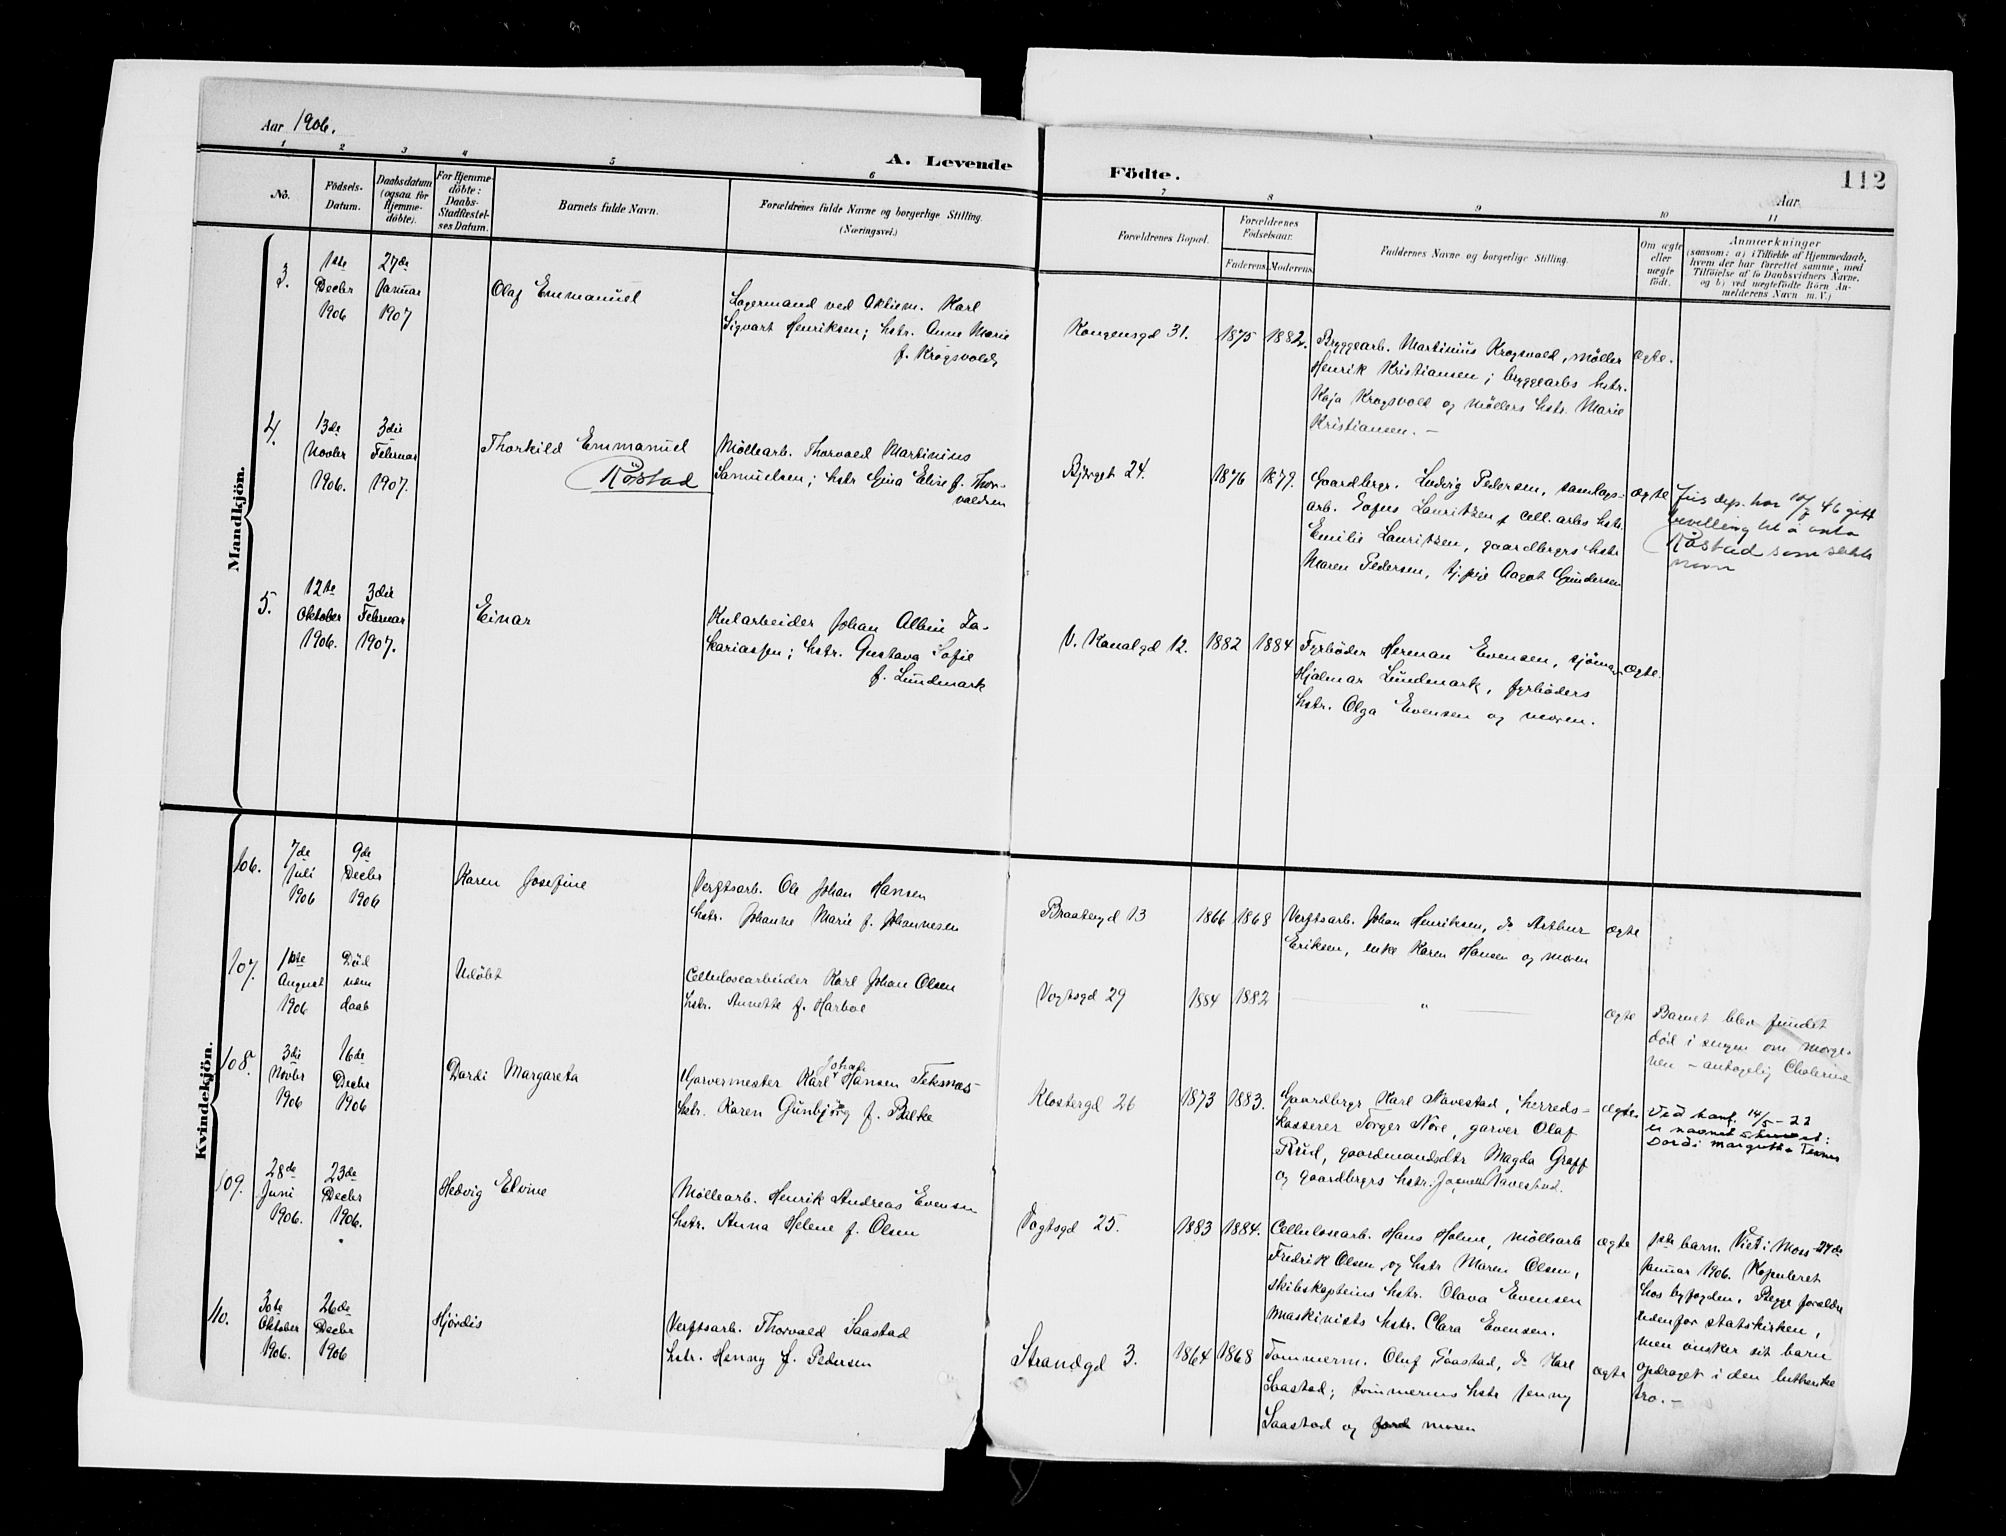 Aar 1906.
A. Levende Födte.
112
Aar
1 2 3 4 5 6 7 8 9 10 11
No.
Födsels-
Datum.
Daabsdatum
(ogsaa for
Hjemme-
döbte).
For Hjemme-
döbte:
Daabs-
Stadfæstel-
ses Datum.
Barnets fulde Navn.
Forældrenes fulde Navne og borgerlige Stilling.
(Næringsvei.)
Forældrenes Bopæl.
Forældrenes
Födselsaar.
Faderens. Moderens.
Faddernes Navne og borgerlige Stilling.
Om ægte
eller
uægte
födt.
Anmærkninger
(saasom: a) i Tilfælde af Hjemmedaab,
hvem der har forrettet samme, med
Tilföielse af to Daabsvidners Navne.
og b) ved uægtefödte Börn An-
melderens Navn m. V.)
Mandkjön.
3.
1ste
Decbr
1906
27de
Januar
1907
Olaf Emmanuel
Lagermand ved Oktiem. Karl
Sigvart Henriksen; hstr. Anne Marie
f. Krogsvold
Kongensgd 31.
1875
1882.
Bryggearb. Martinius Krogsvold, møller
Henrik Kristiansen; bryggearbs hstr.
Kaja Krogsvold og møllers hstr. Marie
Kristiansen. –
ægte.
4.
13de
Novbr
1906.
3die
Februar
1907.
Thorkild Emmanuel
Röstad
Møllearb. Thorvald Martinius
Samuelsen; hstr Gina Elise f. Thor-
valdsen
Bjerget 24.
1876
1877.
Gaardbgr. Ludvig Pedersen, samlags-
arb. Sofus Lauritzen, cell. arbs hstr.
Emilie Lauritzen, gaardbgrs hstr
Maren Pedersen, tj. pige Aagot Gundersen
ægte
Jus. dep. har 10/7 46 gitt
bevilling til å anta
Röstad som slekts
navn
5.
12te
Oktober
1906.
3die
Februar
1907.
Einar
Kularbeider Johan Albin Za-
kariassen; hstr. Gustava Sofie
f. Lundmark
V. Kanalgd 12.
1882
1884
Fyrbøder Herman Evensen, sjøman
Hjalmar Lundmark, fyrbøders
hstr. Olga Evensen og moren.
ægte.
Kvindekjön.
106.
7de
Juli
1906
9de
Decbr
1906
Karen Josefine
Verftsarb. Ole Johan Hansen
hstr. Johanne Marie f. Johannesen
Braatengd 13
1866
1868
Verftsarb. Johan Henriksen, do Arthur
Eriksen, enke Karen Hansen og moren
ægte
107.
1ste
August
1906
Död
uden
daab
Udøbt
Cellulosearbeider Karl Johan Olsen
hstr. Annette f. Harboe
Vogtsgd 29
1884
1882
"
ægte
Barnet blev fundet
död i sengen om morge-
nen – antagelig Cholerine
108.
3die
Novbr
1906
16de
Decbr
1906
Dordi Margareta
Johan
Garvermester Karl Hansen Teksnæs
hstr. Karen Gunbjørg f. Balke
Klostergd 26
1873
1883.
Gaardbgr Karl Navestad, herreds-
kasserer Torger Nore, garver Olaf
Ruud, gaardmandsdtr Magda Graff
og gaardbgrs hstr. Navestad.
ægte.
Ved konf. 14/5 – 22
er navnet skrevet:
Dordi Margrethe
109.
28de
Juni
1906.
23de
Decbr
1906.
Hedvig Elvine
Møllearb. Henrik Andreas Evensen
hstr. Anna Helene f. Olsen
Vogtsgd 25.
1883
1884.
Cellulosearb. Hans Holme, møllearb
Fredrik Olsen, og hstr Maren Olsen,
skibskapteins hstr. Olava Evensen
maskinists hstr. Clara Evensen.
ægte
1ste barn. Viet i Moss 27de
Januar 1906. Kopuleret
hos byfogden. Begge forældre
udenfor statskirken,
men önsker sit barn
opdraget i den lutherske
tro. –
110.
30te
Oktober
1906.
26de
Decbr
1906
Hjördis
Verftsarb. Thorvald Saastad
hstr. Henny f. Pedersen
Strandgd 3.
1864
1868
Tømmerm. Oluf Saastad, do Karl
Saastad; tømmermns hstr Jenny
Saastad og moren
ægte